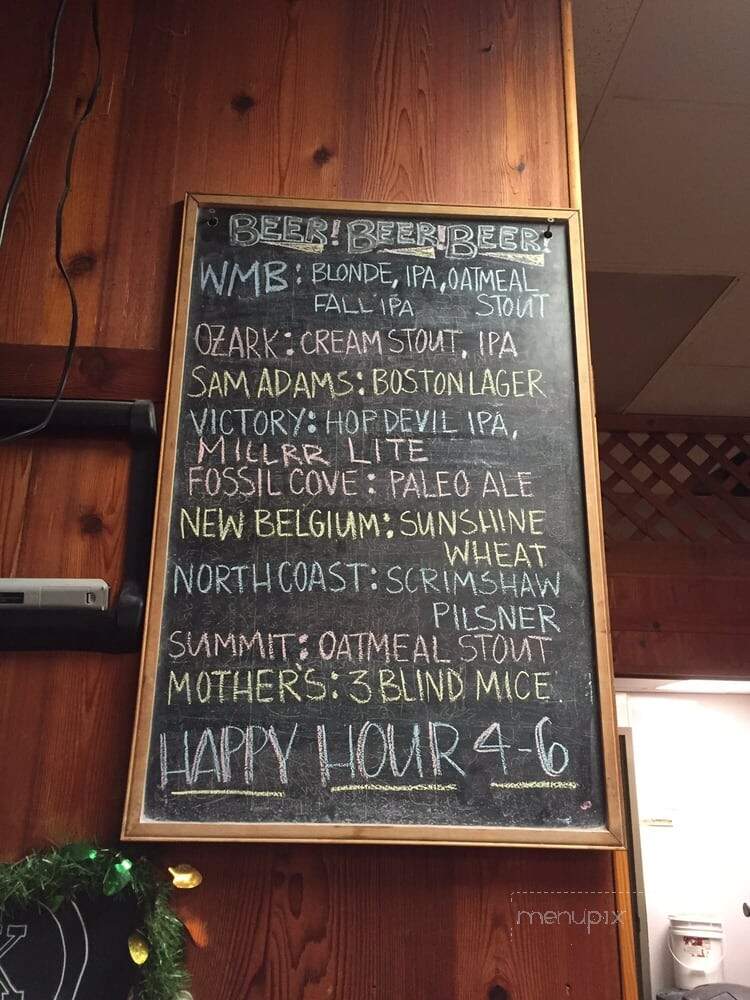 BEER! BEER! BEER!
WMB: BLONDE, IPA, OATMEAL
FALL IPA STOUT
OZARK: CREAM STOUT, IPA
SAM ADAMS: BOSTON LAGER
VICTORY: HOP DEVIL IPA,
MILLRR LITE
FOSSIL COVE: PALEO ALE
NEW BELGIUM: SUNSHINE
WHEAT
NORTH COAST: SCRIMSHAW
PILSNER
SUMMIT: OATMEAL STOUT
MOTHER'S: 3 BLIND MICE
HAPPY HOUR 4-6
menupix